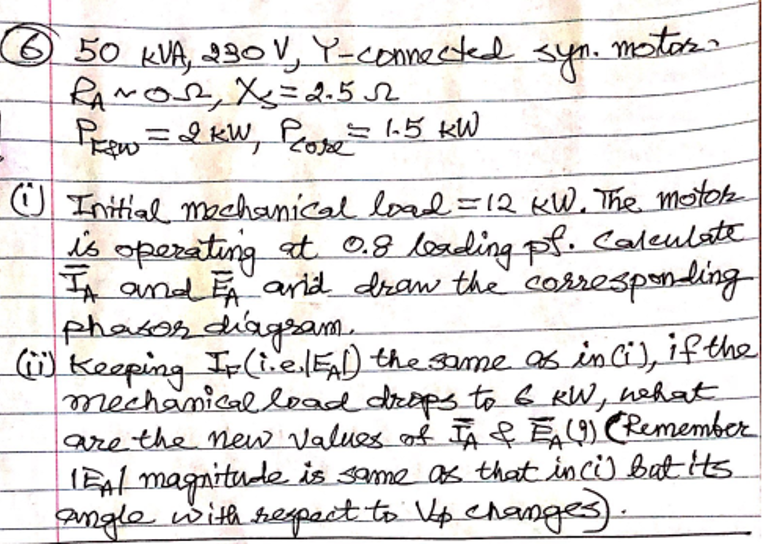 ⑥ 50 KVA, 230 V, Y-connected syn. motor.
R_A ~ 0 Ω, X_S = 2.5 Ω
P_F&W = 2 KW, P_core = 1.5 KW
(i) Initial mechanical load = 12 KW. The motor
is operating at 0.8 leading pf. Calculate
I̅_A and E̅_A and draw the corresponding
phasor diagram.
(ii) Keeping I_F (i.e. |E_A|) the same as in (i), if the
mechanical load drops to 6 KW, what
are the new values of I̅_A & E̅_A (?) (Remember
|E_A| magnitude is same as that in (i) but its
angle with respect to V_φ changes).